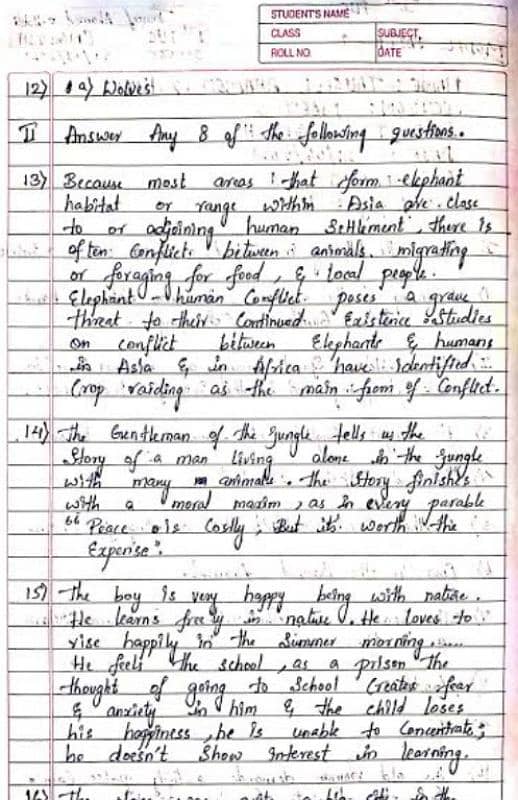 STUDENT'S NAME
CLASS SUBJECT
ROLL NO. DATE
12) a) Wolves
II Answer Any 8 of the following questions.
13) Because most areas that form elephant
habitat or range within Asia are close
to or adjoining human Settlement, there is
often Conflict between animals migrating
or foraging for food, & local people.
Elephant - human Conflict poses a grave
threat to their Continued Existence Studies
on conflict between Elephants & humans
in Asia & in Africa have identified
Crop raiding as the main from of Conflict.
14) The Gentleman of the jungle tells us the
Story of a man living alone in the jungle
with many animals. The Story finishes
with a moral maxim, as in every parable
"Peace is Costly, But its worth the
Expense".
15) The boy is very happy being with nature.
He learns freely in nature. He loves to
rise happily in the Summer morning......
He feels the school, as a prison the
thought of going to School Creates fear
& anxiety in him & the child loses
his happiness, he is unable to Concentrate;
he doesn't Show interest in learning.
16) The